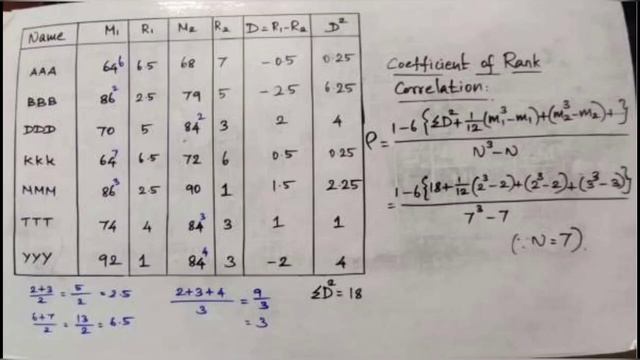 Name M₁ R₁ M₂ R₂ D=R₁-R₂ D²
AAA 64⁶ 6.5 68 7 -0.5 0.25
BBB 86² 2.5 79 5 -2.5 6.25
DDD 70 5 84² 3 2 4
KKK 64⁷ 6.5 72 6 0.5 0.25
MMM 86³ 2.5 90 1 1.5 2.25
TTT 74 4 84³ 3 1 1
YYY 92 1 84⁴ 3 -2 4
(2+3)/2 = 5/2 = 2.5
(6+7)/2 = 13/2 = 6.5
(2+3+4)/3 = 9/3
= 3
ΣD² = 18
Coefficient of Rank
Correlation:
ρ = 1-6{ΣD²+1/12(m₁³-m₁)+(m₂³-m₂)+ }
N³-N
= 1-6{18+1/12(2³-2)+(2³-2)+(3³-3)}
7³-7
(∵N=7).